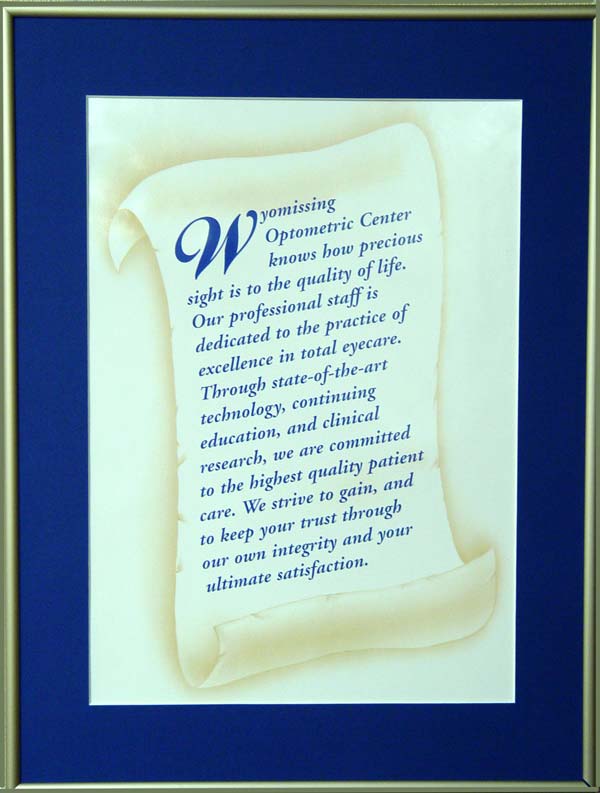 Wyomissing
Optometric Center
knows how precious
sight is to the quality of life.
Our professional staff is
dedicated to the practice of
excellence in total eyecare.
Through state-of-the-art
technology, continuing
education, and clinical
research, we are committed
to the highest quality patient
care. We strive to gain, and
to keep your trust through
our own integrity and your
ultimate satisfaction.